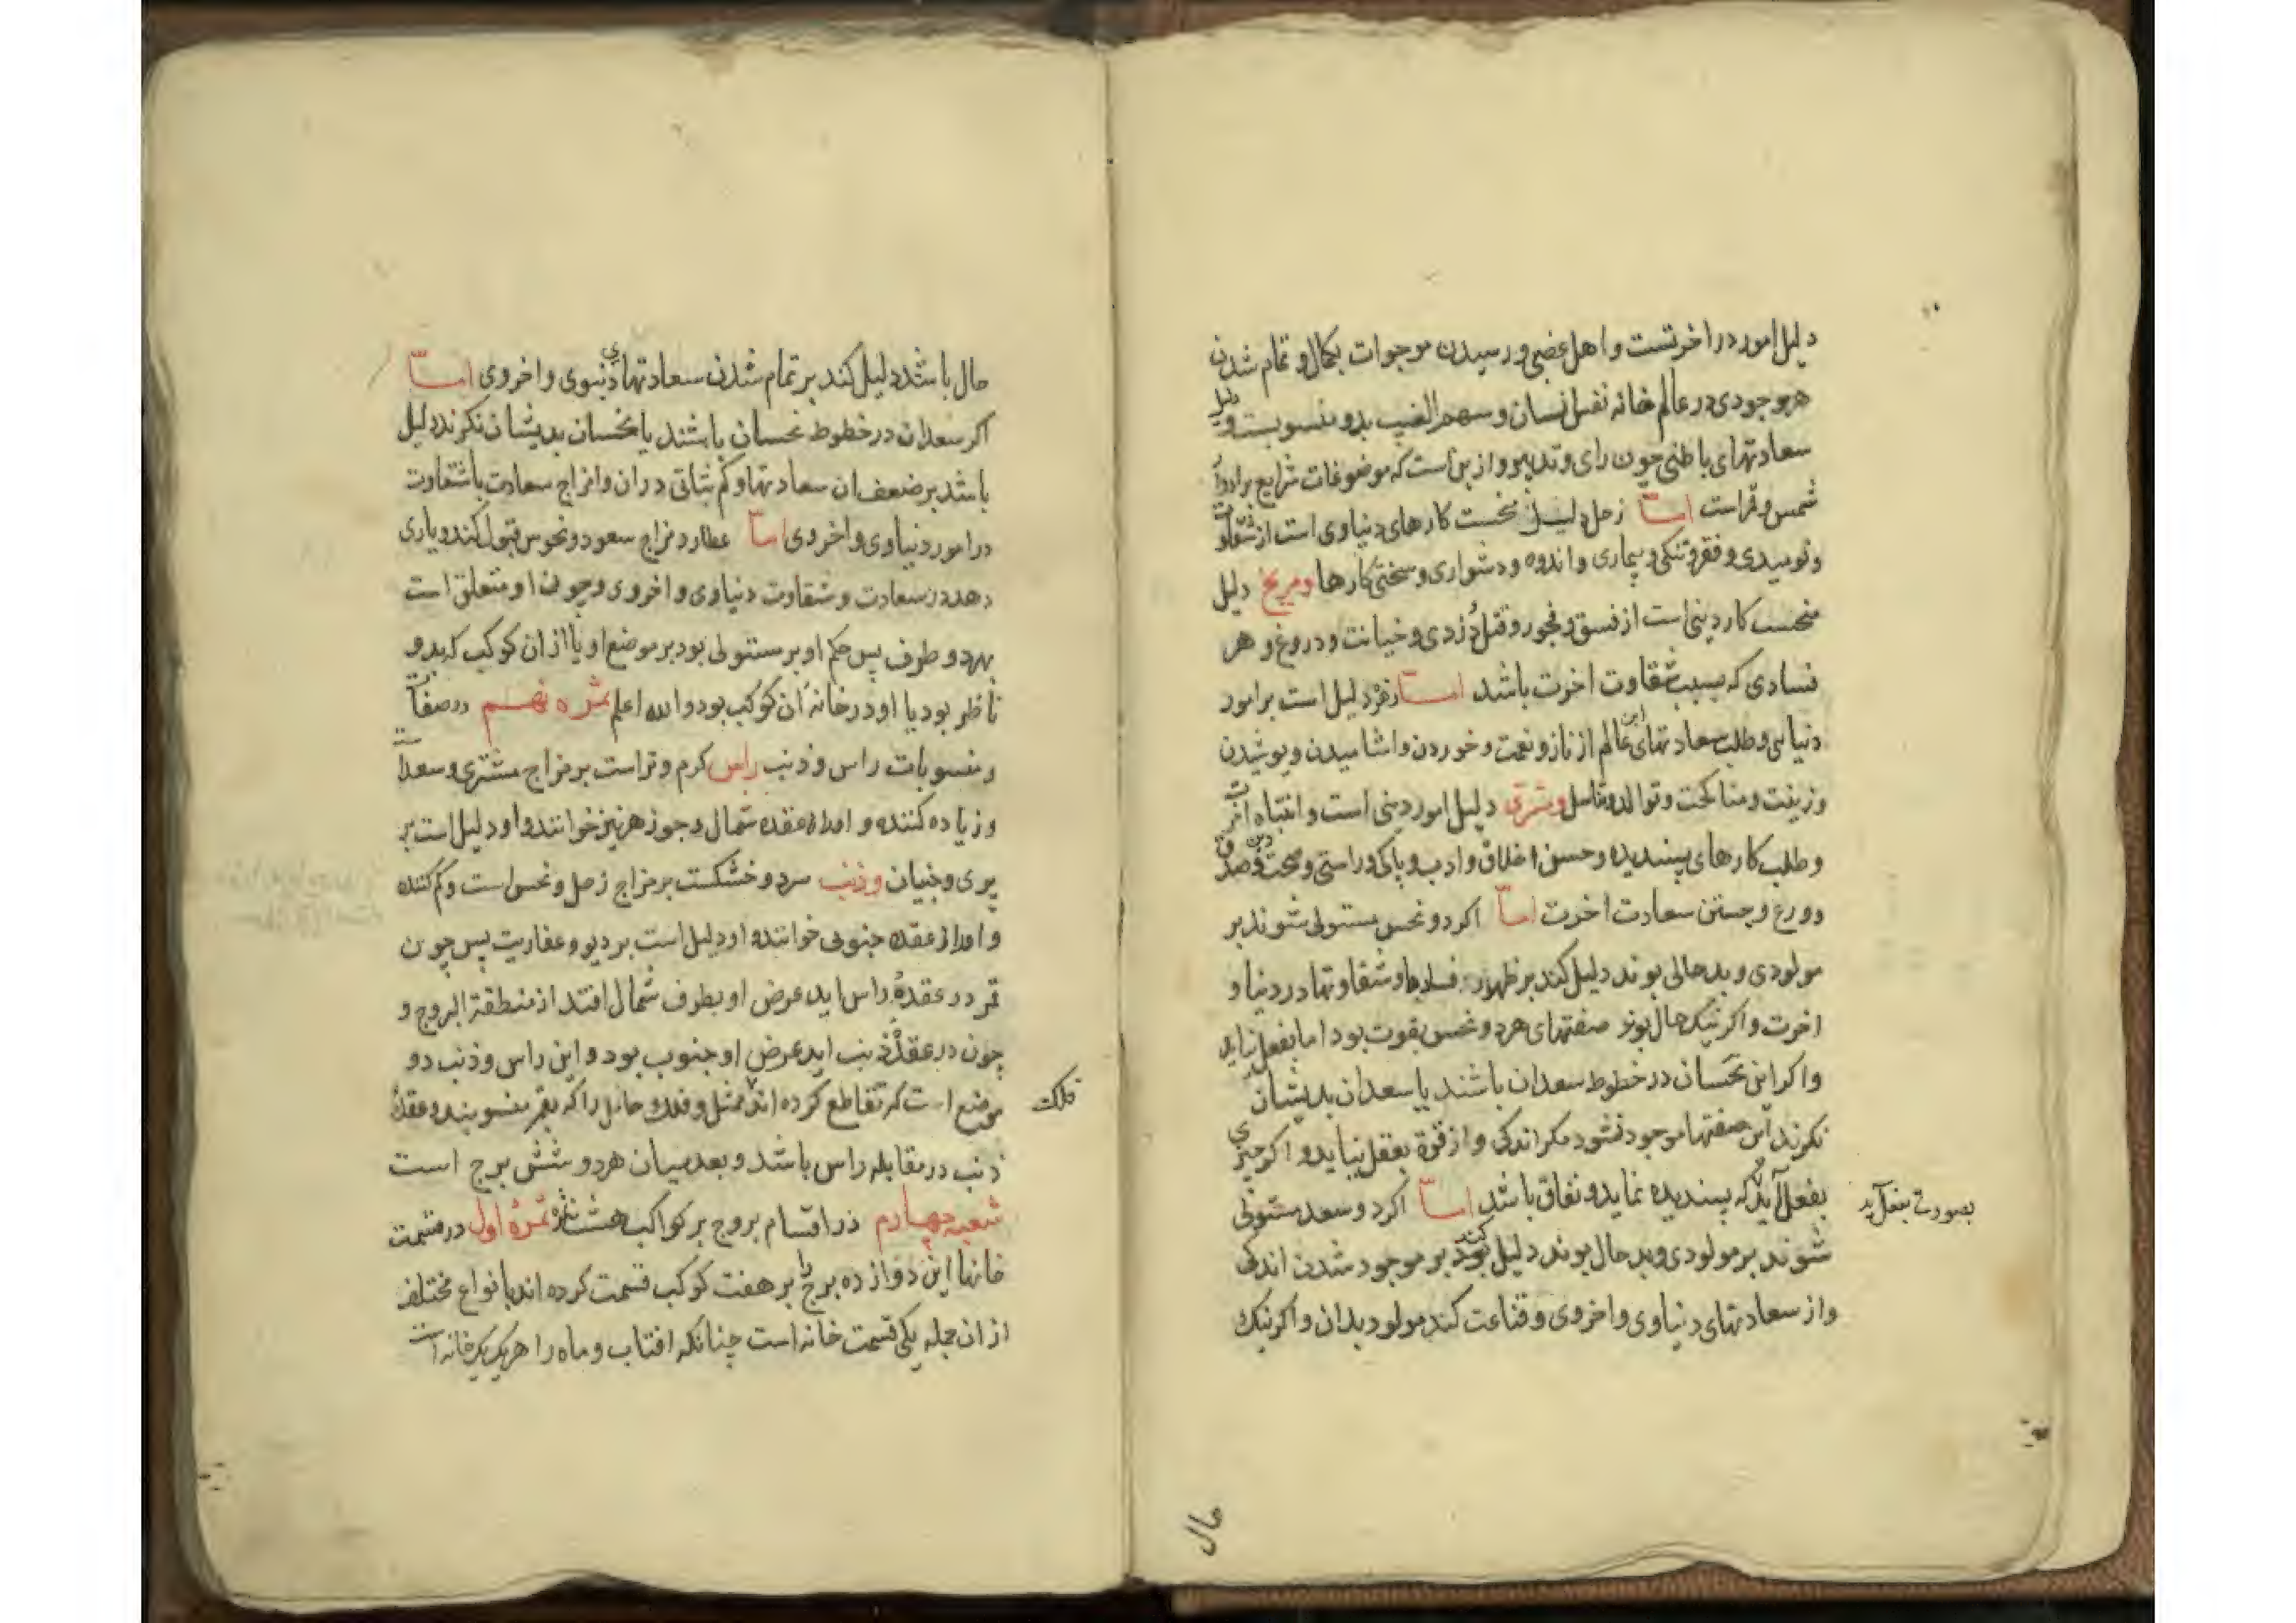 دلیل امور در اخرتست و اهل عضی و رسیدن موجوات بکمال و تمام شدن
هر موجودی در عالم خانه نفس انسان و سهم الغیب بدو منسوبست و دلیل
سعادتهای باطنی چون رای و تدبیر و از بن است که موضوعات شرایع بر ادوار
شمس و قمر است امـــا زحل دلیل نحست کارهای دنیاوی است از شقاوت
و نومیدی و فقر و تنکی و بیماری و اندوه و دشواری و سختی کارها و مریخ دلیل
منحست کار دینی است از فسق و فجور و قتل و دزدی و خیانت و دروغ و هر
فسادی که بسبب شقاوت اخرت باشد امـــا زهره دلیل است بر امور
دنیایی و طلب سعادتهای این عالم از ناز و نعمت و خوردن و اشامیدن و پوشیدن
و زینت و مناکحت و توالد و تناسل و مشتری دلیل امور دینی است و انتباه اخرت
و طلب کارهای پسندیده و حسن اخلاق و ادب و پاکی و راستی و صحت دین و صدق
و ورع و جستن سعادت اخرت امـــا اکر دو نحس مستولی شوند بر
مولودی و بد حالی بوند دلیل کند بر ظهور فسادها و شقاوتها در دنیا و
اخرت و اکر نیک حال بوند صفتهای هر دو نحس بقوت بود اما بفعل نیاید
و اکر این نحسان در خطوط سعدان باشند یا سعدان بدیشان
نکرند آن صفتها موجود نشود مکر اندکی و از قوة بفعل نیاید و اکر چیزی
بفعل آید که پسندیده نماید و نفاق باشد امـــا اکر دو سعد مستولی
بصورتی بفعل آید
شوند بر مولودی و بد حال بوند دلیل کند بر موجود شدن اندکی
و از سعادتهای دنیاوی و اخروی و قناعت کند مولود بدان و اکر نیک
حال
حال باشد دلیل کند بر تمام شدن سعادتهای دنیوی و اخروی امـــا
اکر سعدان در خطوط نحسان باشند یا نحسان بدیشان نکرند دلیل
باشد بر ضعف ان سعادتها و کم ثباتی در ان و امزاج سعادت با شقاوت
در امور دنیاوی و اخروی امـــا عطارد مزاج سعود و نحوس قبول کند و یاری
دهد در سعادت و شقاوت دنیاوی و اخروی و چون او متعلق است
بهر دو طرف پس حکم او بر مستولی بود بر موضع او یا از ان کوکب که بدو
ناظر بود یا او در خانه آن کوکب بود و الله اعلم ثمره نهـــم در صفات
و منسوبات راس و ذنب راس کرم و تر است بر مزاج مشتری و سعد است
و زیاده کننده و او را عقده شمال و جوزهر نیز خوانند و او دلیل است بر
پری و جنیان و ذنب سرد و خشکست بر مزاج زحل و نحس است و کم کننده
و او را عقده جنوبی خوانند و او دلیل است بر دیو و عفاریت پس چون
قمر در عقدهٔ راس اید عرض او بطرف شمال افتد از منطقة البروج و
چون در عقدهٔ ذنب اید عرض او جنوب بود و این راس و ذنب دو
موضع است که تقاطع کرده اند ممثل و فلک حامل را که بقمر منسوبند و عقدهٔ
فلک
ذنب در مقابله راس باشد و بعد میان هر دو شش برج است
شعبه چهارم در اقسام بروج بر کواکب هشت ثمره ثمرهٔ اول در قسمت
خانها این دوازده برج را بر هفت کوکب قسمت کرده اند بانواع مختلف
از ان جمله یکی قسمت خانه است چنانکه افتاب و ماه را هر یک یک خانه است